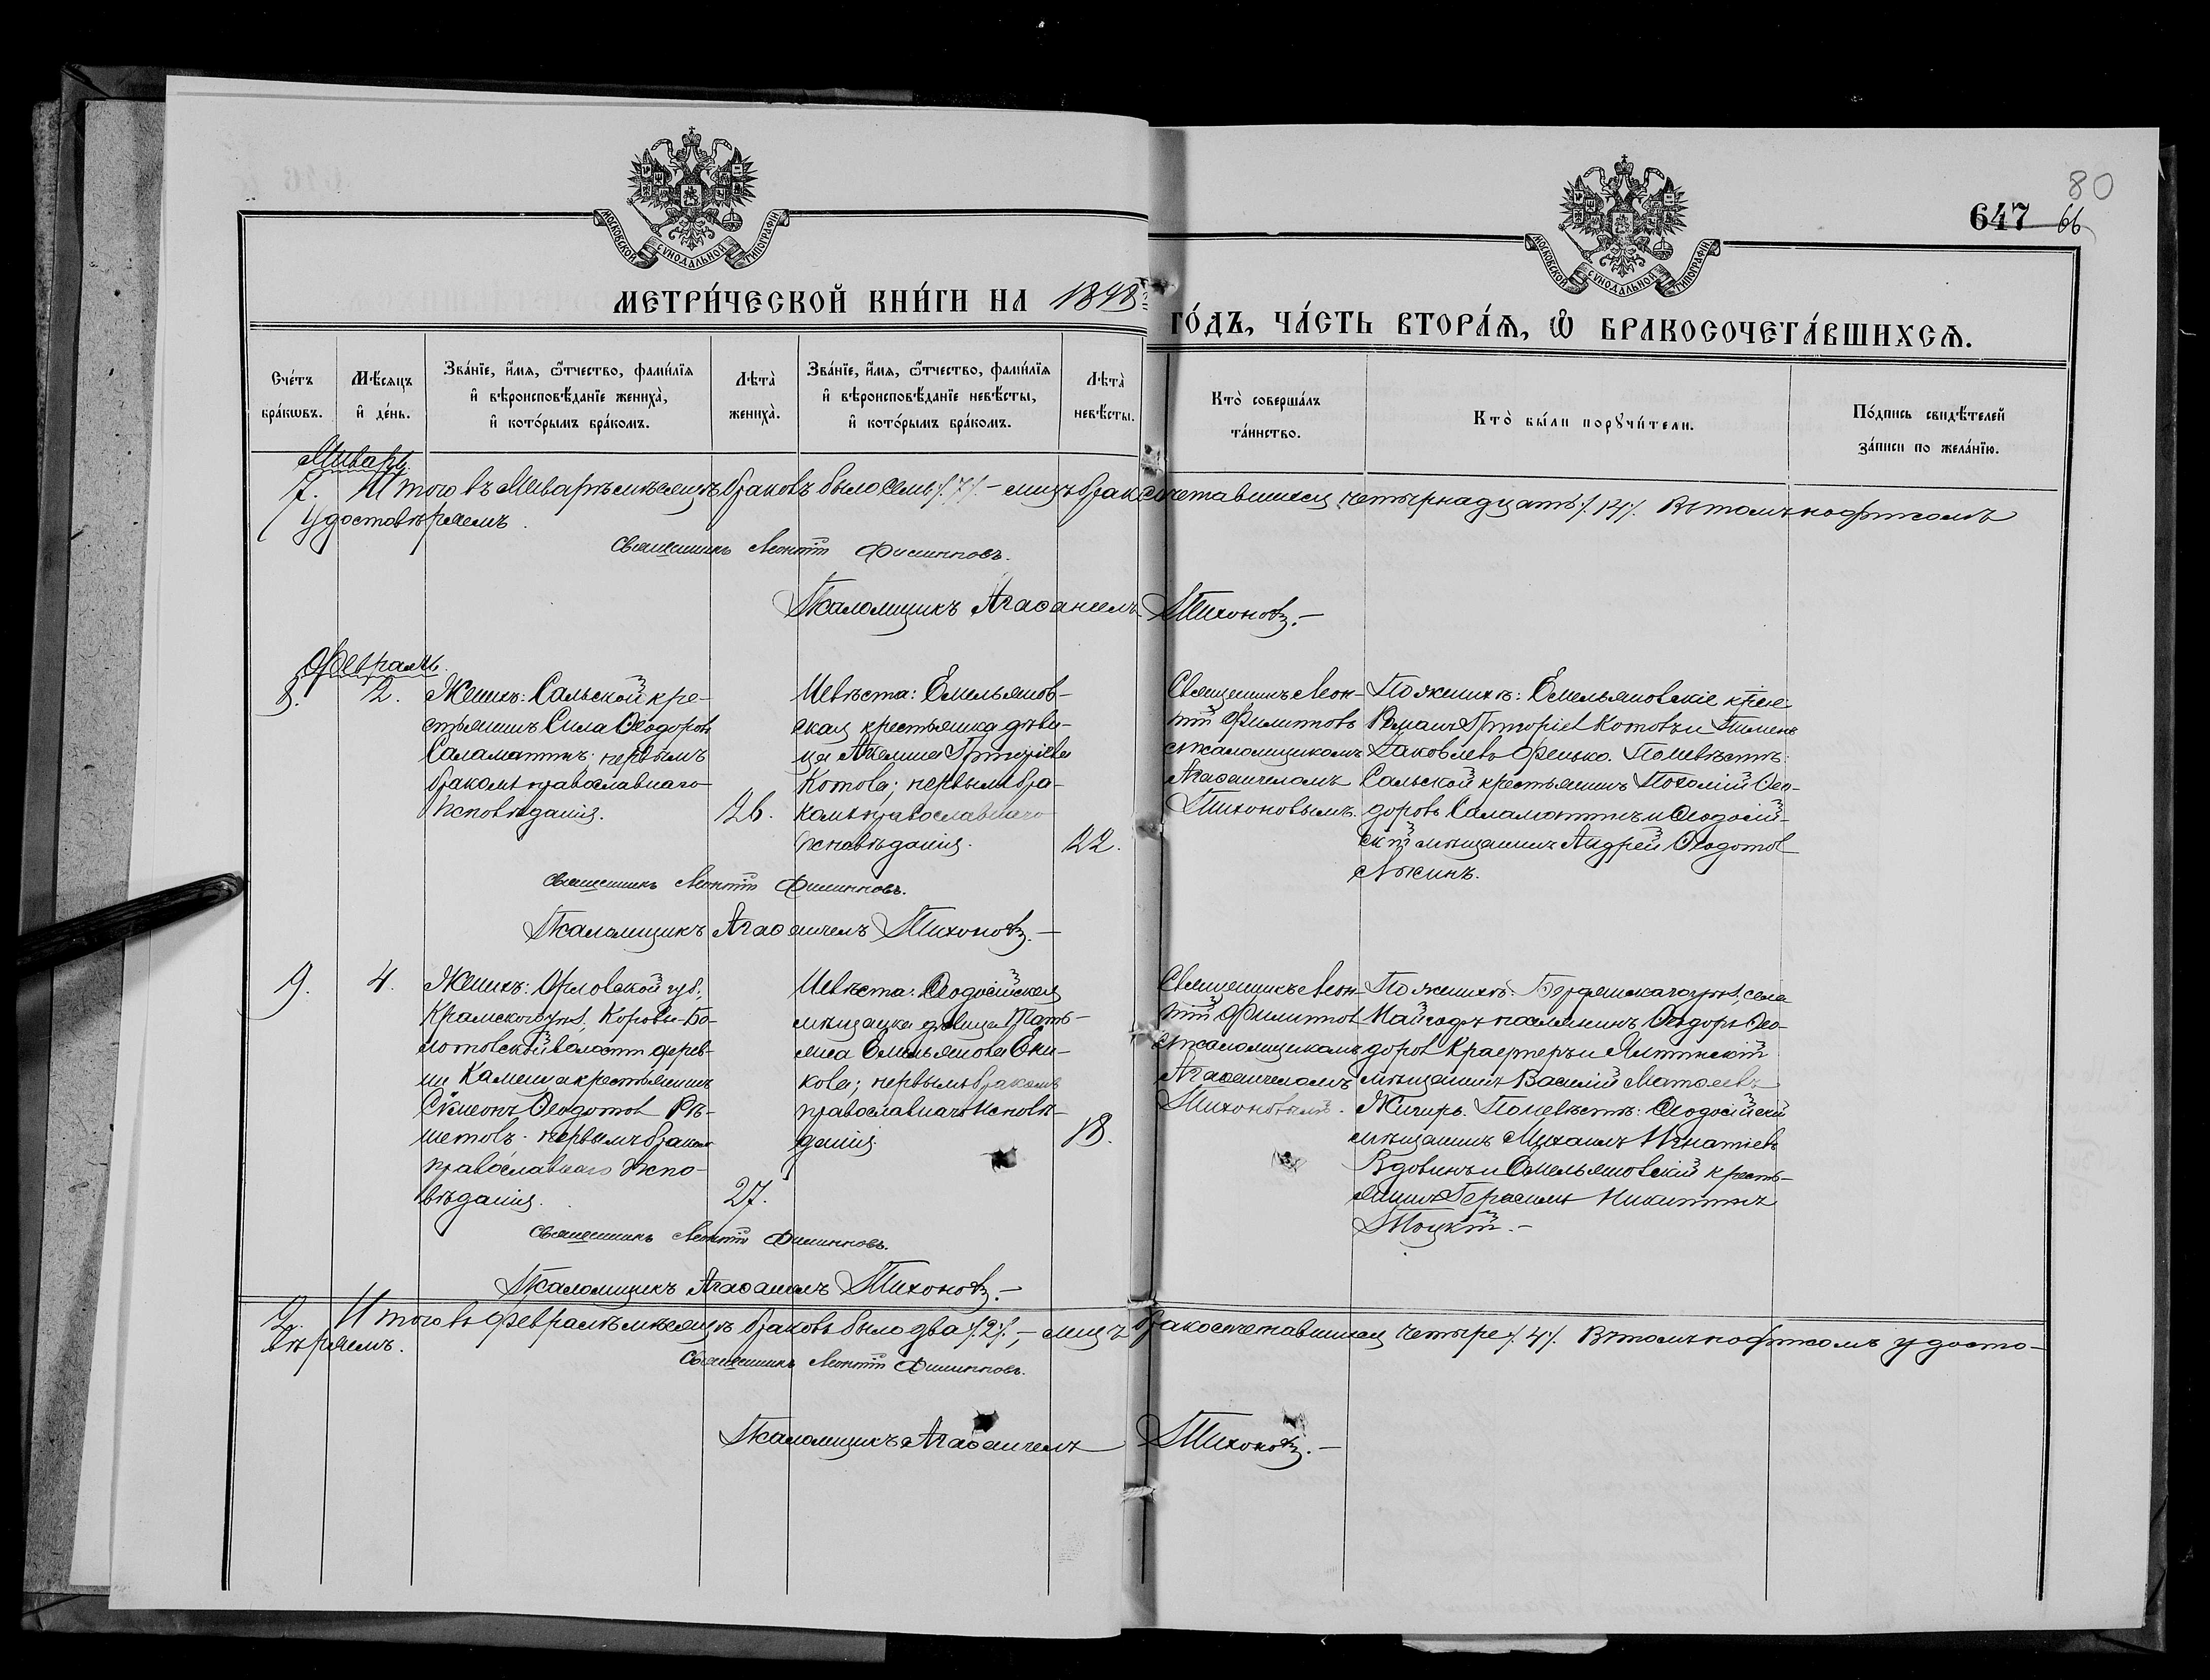 80
647 66
МОСКОВСКОЙ СѴНОДАЛЬНОЙ ТИПОГРАФІИ
МОСКОВСКОЙ СѴНОДАЛЬНОЙ ТИПОГРАФІИ
МЕТРИ́ЧЕСКОЙ КНИ́ГИ НА 1898 й
ГО́ДЪ, ЧА́СТЬ ВТОРА́Ѧ, Ѽ БРАКОСОЧЕТА́ВШИХСѦ.
Сче́тъ бра́кѡвъ.
Мѣ́сяцъ и҆ де́нь.
Зва́нїе, и҆́мѧ, ѻ҆́тчество, фами́лїѧ и҆ вѣроисповѣ́данїе жениха̀, и҆ кото́рымъ бра́комъ.
Лѣта̀ жениха̀.
Зва́нїе, и҆́мѧ, ѻ҆́тчество, фами́лїѧ и҆ вѣроисповѣ́данїе невѣ́сты, и҆ кото́рымъ бра́комъ.
Лѣта̀ невѣ́сты.
Кто̀ соверша́лъ та́инство.
Кто̀ бы́ли порꙋчи́тели.
По́дпись свидѣ́телей за́писи по жела́нїю.
Январь
7. Итого въ Январѣ мѣсяцѣ браковъ было семь /7/. – лицъ бракосочетавшихся четырнадцать /14/. Въ томъ и офиціомъ
удостовѣряемъ.
Священникъ Леонтій Филипповъ.
Псаломщикъ Агаѳангелъ Тихоновъ. –
Февраль.
8.
2.
Женихъ: Сальской кре-
стьянинъ Сила Ѳеодоровъ
Саламатинъ; первымъ
бракомъ православнаго
исповѣданія.
26.
Невѣста: Емельянов-
ская крестьянка дѣви-
ца Акилина Григорьева
Котова; первымъ бра-
комъ православнаго
исповѣданія.
22.
Священникъ Леон-
тій Филипповъ
съ псаломщикомъ
Агаѳангеломъ
Тихоновымъ.
По женихѣ: Емельяновскіе крест.
Романъ Григоріев Котовъ и Пименъ
Яковлевъ Фенько. По невѣстѣ:
Сальской крестьянинъ Пахомій Ѳео-
доровъ Саламатинъ и Ѳеодосій-
скій мѣщанинъ Андрей Ѳеодотов
Лыкинъ.
Священникъ Леонтій Филипповъ.
Псаломщикъ Агаѳангелъ Тихоновъ. –
9.
4.
Женихъ: Орловской губ.,
Кромского уѣз., Коровье-Бо-
лотовской волости, дерев-
ни Каменца крестьянинъ
Симеонъ Ѳеодотов Рѣ-
шетовъ первымъ бракомъ
православнаго испо-
вѣданія.
27.
Невѣста: Ѳеодосійская
мѣщанка дѣвица Тать-
яна Емельянова Ени-
кова; первымъ бракомъ
православнаго исповѣ-
данія.
18.
Священникъ Леон-
тій Филиппов
съ псаломщикомъ
Агаѳангеломъ
Тихоновымъ.
По женихѣ: Бердянскаго уѣз., села
Найгофъ поселянинъ Ѳеодоръ Ѳео-
доров и Ялтинскій
мѣщанинъ Василій Матѳеевъ
По невѣстѣ: Ѳеодосійскій
мѣщанинъ Михаилъ Игнатіевъ
Вдовинъ и Емельяновскій кресть-
янинъ Герасимъ Никитинъ
Троцкій. –
Священникъ Леонтій Филипповъ.
Псаломщикъ Агаѳангелъ Тихоновъ. –
2. Итого въ Февралѣ мѣсяцѣ браковъ было два /2/. – лицъ бракосочетавшихся четыре /4/. Въ томъ и офиціомъ удосто-
вѣряемъ.
Священникъ Леонтій Филипповъ.
Псаломщикъ Агаѳангелъ Тихоновъ. –